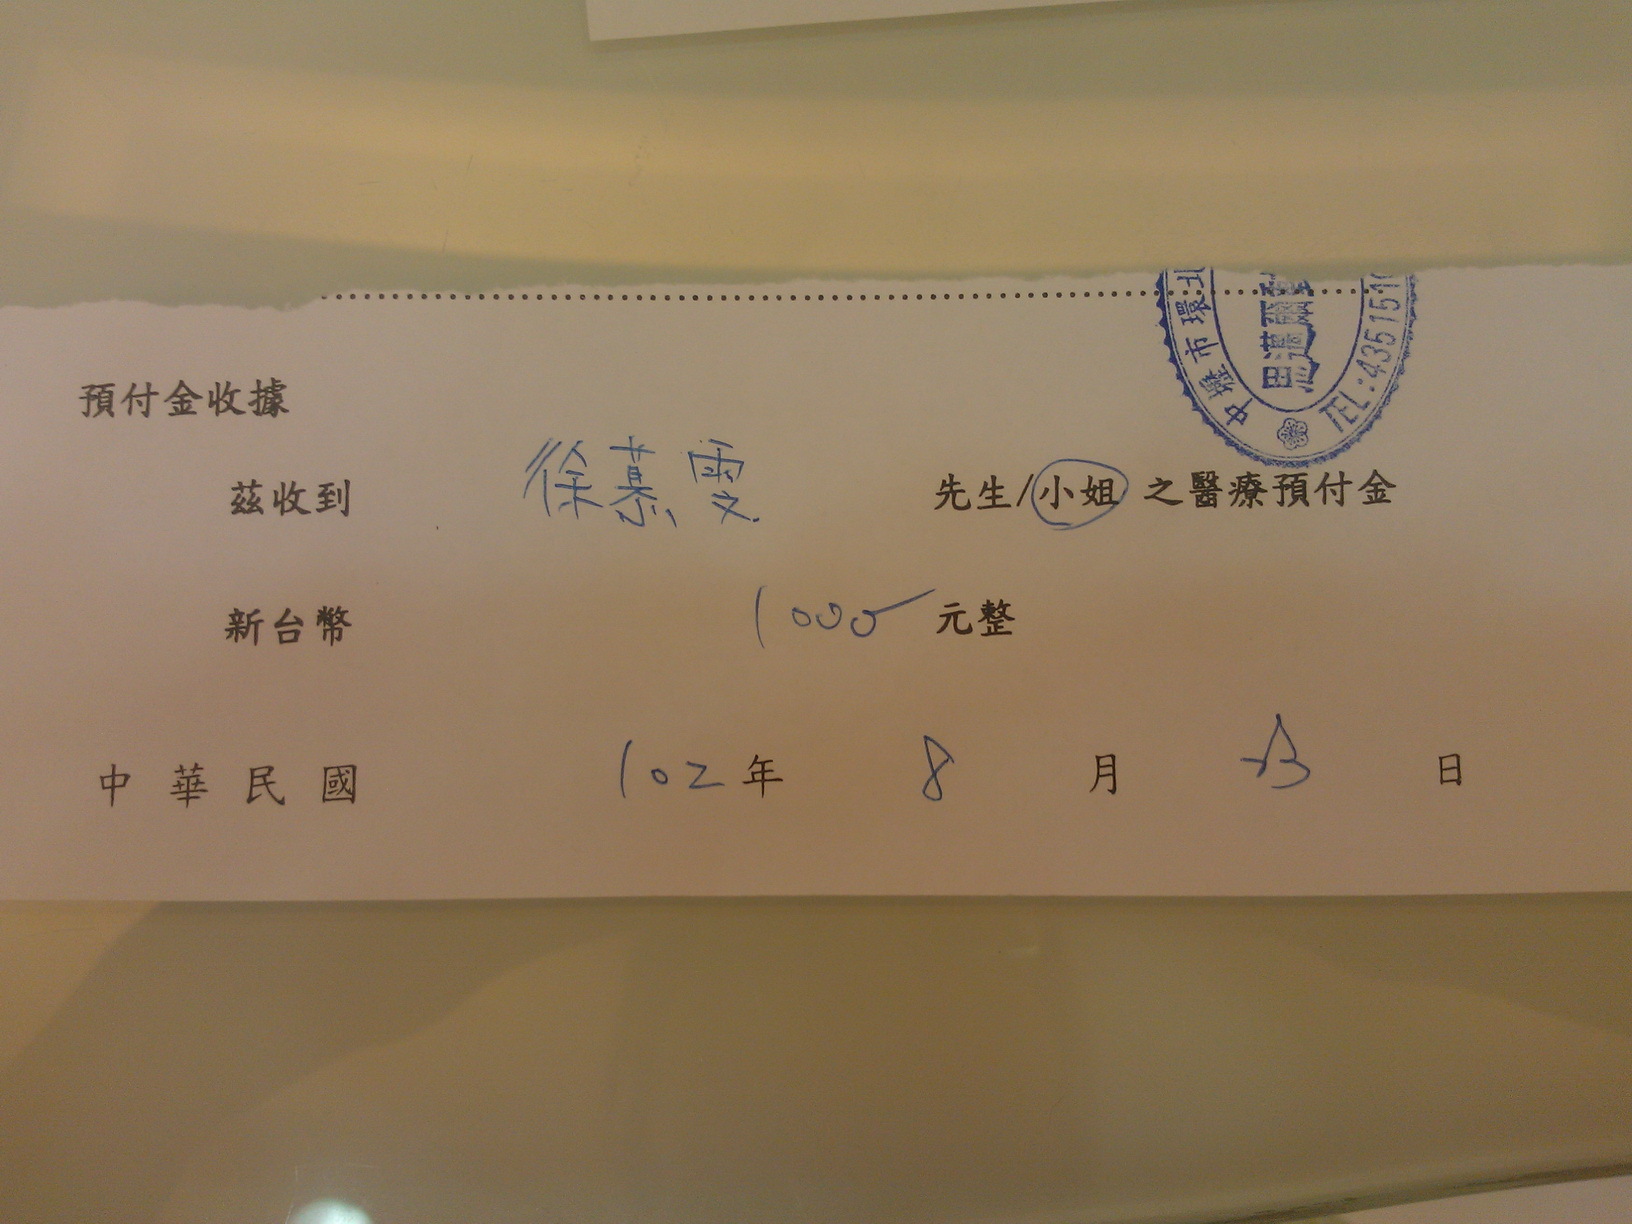 中壢市環北
TEL:4351510
預付金收據
茲收到 徐慕雯 先生/小姐 之醫療預付金
新台幣 1000 元整
中華民國 102 年 8 月 23 日